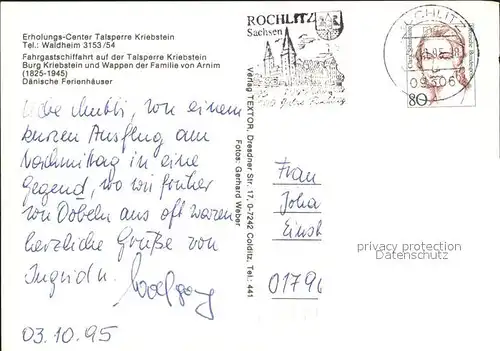 Erholungs-Center Talsperre Kriebstein
Tel.: Waldheim 3153/54
Fahrgastschiffahrt auf der Talsperre Kriebstein
Burg Kriebstein und Wappen der Familie von Arnim
(1825-1945)
Dänische Ferienhäuser
Liebe Mutti, von einem
kurzen Ausflug am
Nachmittag in eine
Gegend, wo wir früher
von Döbeln aus oft waren
herzliche Grüße von
Ingrid u. Wolfgang
03.10.95
Verlag TEXTOR, Dresdner Str. 17, O-7242 Colditz, Tel.: 441
Fotos: Gerhard Weber
ROCHLITZ
Sachsen
ROCHLITZ
09306
80
Frau
Joha
Einst
0179
privacy protection
Datenschutz